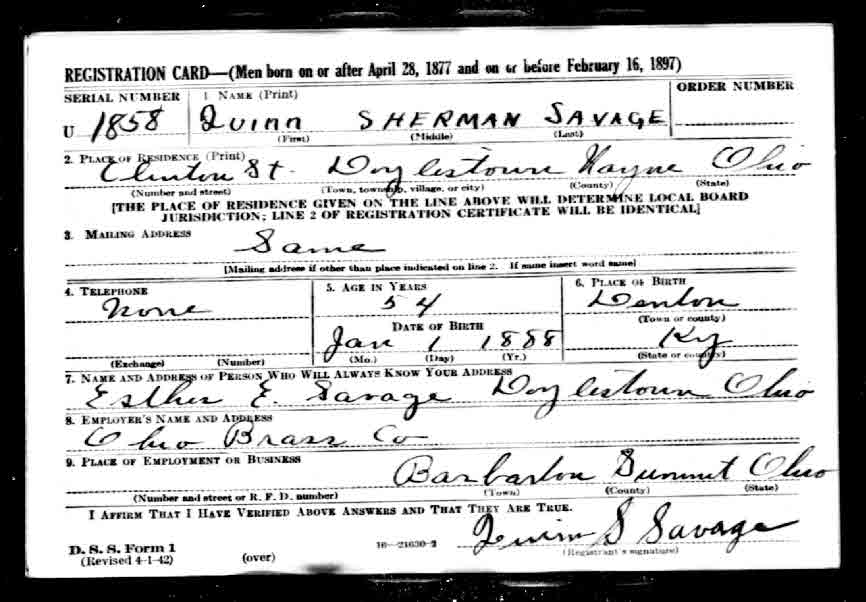 REGISTRATION CARD—(Men born on or after April 28, 1877 and on or before February 16, 1897)
SERIAL NUMBER 1 NAME (Print) ORDER NUMBER
U 1858 Quinn SHERMAN SAVAGE
(First) (Middle) (Last)
2. PLACE OF RESIDENCE (Print)
Clinton St. Doylestown Wayne Ohio
(Number and street) (Town, township, village, or city) (County) (State)
[THE PLACE OF RESIDENCE GIVEN ON THE LINE ABOVE WILL DETERMINE LOCAL BOARD
JURISDICTION; LINE 2 OF REGISTRATION CERTIFICATE WILL BE IDENTICAL]
3. MAILING ADDRESS
Same
[Mailing address if other than place indicated on line 2. If same insert word same]
4. TELEPHONE 5. AGE IN YEARS 6. PLACE OF BIRTH
None 54 Denton
(Town or county)
DATE OF BIRTH
Jan 1 1888 Ky
(Exchange) (Number) (Mo.) (Day) (Yr.) (State or country)
7. NAME AND ADDRESS OF PERSON WHO WILL ALWAYS KNOW YOUR ADDRESS
Esther E. Savage Doylestown Ohio
8. EMPLOYER'S NAME AND ADDRESS
Ohio Brass Co
9. PLACE OF EMPLOYMENT OR BUSINESS
Barbarton Summit Ohio
(Number and street or R. F. D. number) (Town) (County) (State)
I AFFIRM THAT I HAVE VERIFIED ABOVE ANSWERS AND THAT THEY ARE TRUE.
Quinn S Savage
D. S. S. Form 1 16—21630-2 (Registrant's signature)
(Revised 4-1-42) (over)